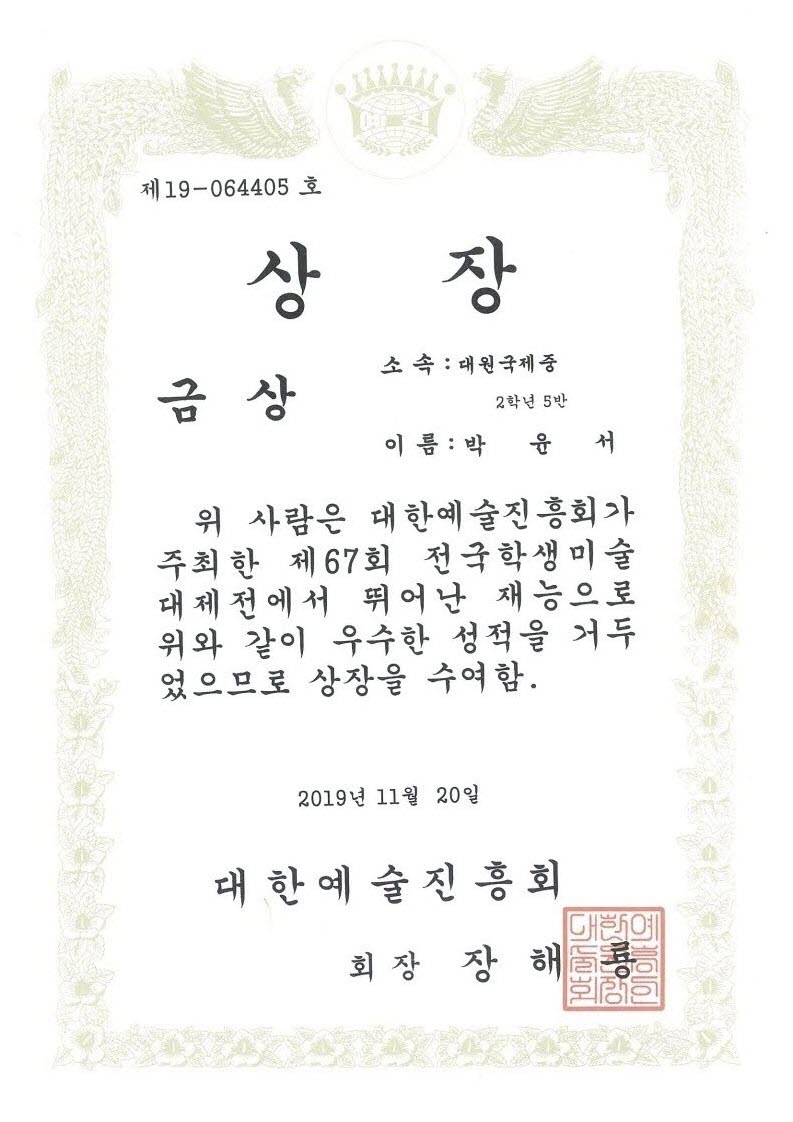 예진
제19-064405 호
상 장
금 상
소 속 : 대원국제중
2학년 5반
이 름 : 박 윤 서
위 사람은 대한예술진흥회가
주최한 제67회 전국학생미술
대제전에서 뛰어난 재능으로
위와 같이 우수한 성적을 거두
었으므로 상장을 수여함.
2019년 11월 20일
대한예술진흥회
회장 장해룡